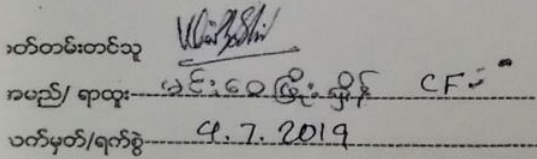 တ်တမ်းတင်သူ
အမည်/ ရာထူး မင်းဝေဖြိုးရှိန် CF
ပက်မှတ်/ရက်စွဲ 4.7.2019